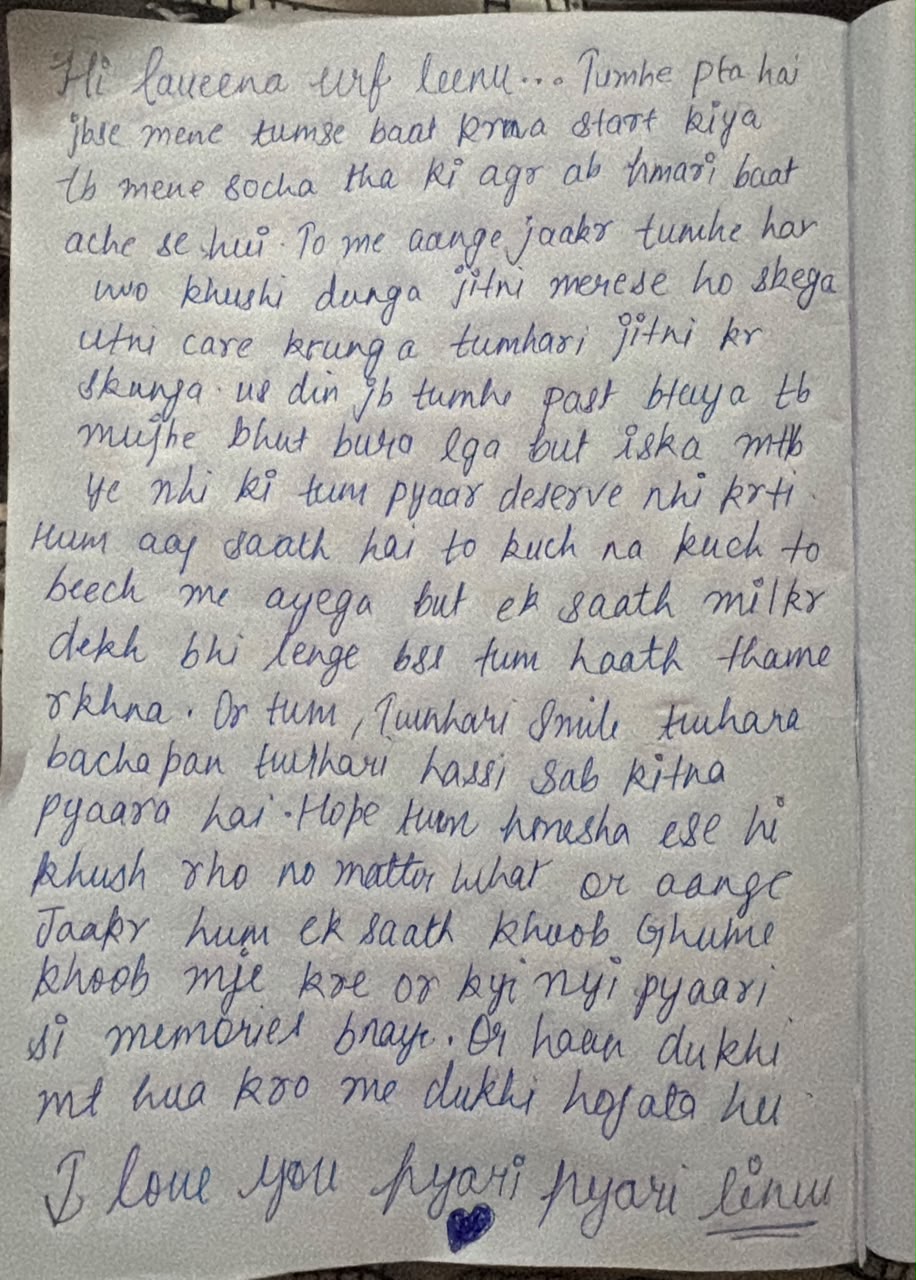 Hi laveena urf leenu... Tumhe pta hai
jbse mene tumse baat krna start kiya
tb mene socha tha ki agr ab hmari baat
ache se hui. To me aange jaakr tumhe har
wo khushi dunga jitni merese ho skega
utni care krunga tumhari jitni kr
skunga. us din jb tumhe past btaya tb
mujhe bhut bura lga but iska mtb
ye nhi ki tum pyaar deserve nhi krti.
Hum aaj saath hai to kuch na kuch to
beech me ayega but ek saath milkr
dekh bhi lenge bss tum haath thame
rkhna. Or tum, Tumhari Smile tumhara
bachapan tumhari hassi sab kitna
pyaara hai. Hope tum hmesha ese hi
khush rho no matter what or aange
Jaakr hum ek saath khoob Ghume
khoob mje kre or kyi nyi pyaari
si memories bnaye. Or haan dukhi
mt hua kro me dukhi hojata hu
I love you pyari pyari linu